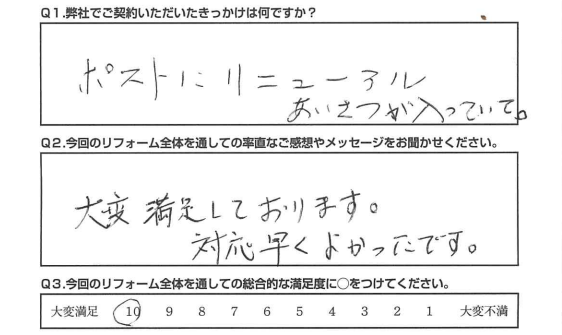 Q1.弊社でご契約いただいたきっかけは何ですか？
ポストにリニューアル
あいさつが入っていて。
Q2.今回のリフォーム全体を通しての率直なご感想やメッセージをお聞かせください。
大変満足しております。
対応早くよかったです。
Q3.今回のリフォーム全体を通しての総合的な満足度に○をつけてください。
大変満足 10 9 8 7 6 5 4 3 2 1 大変不満